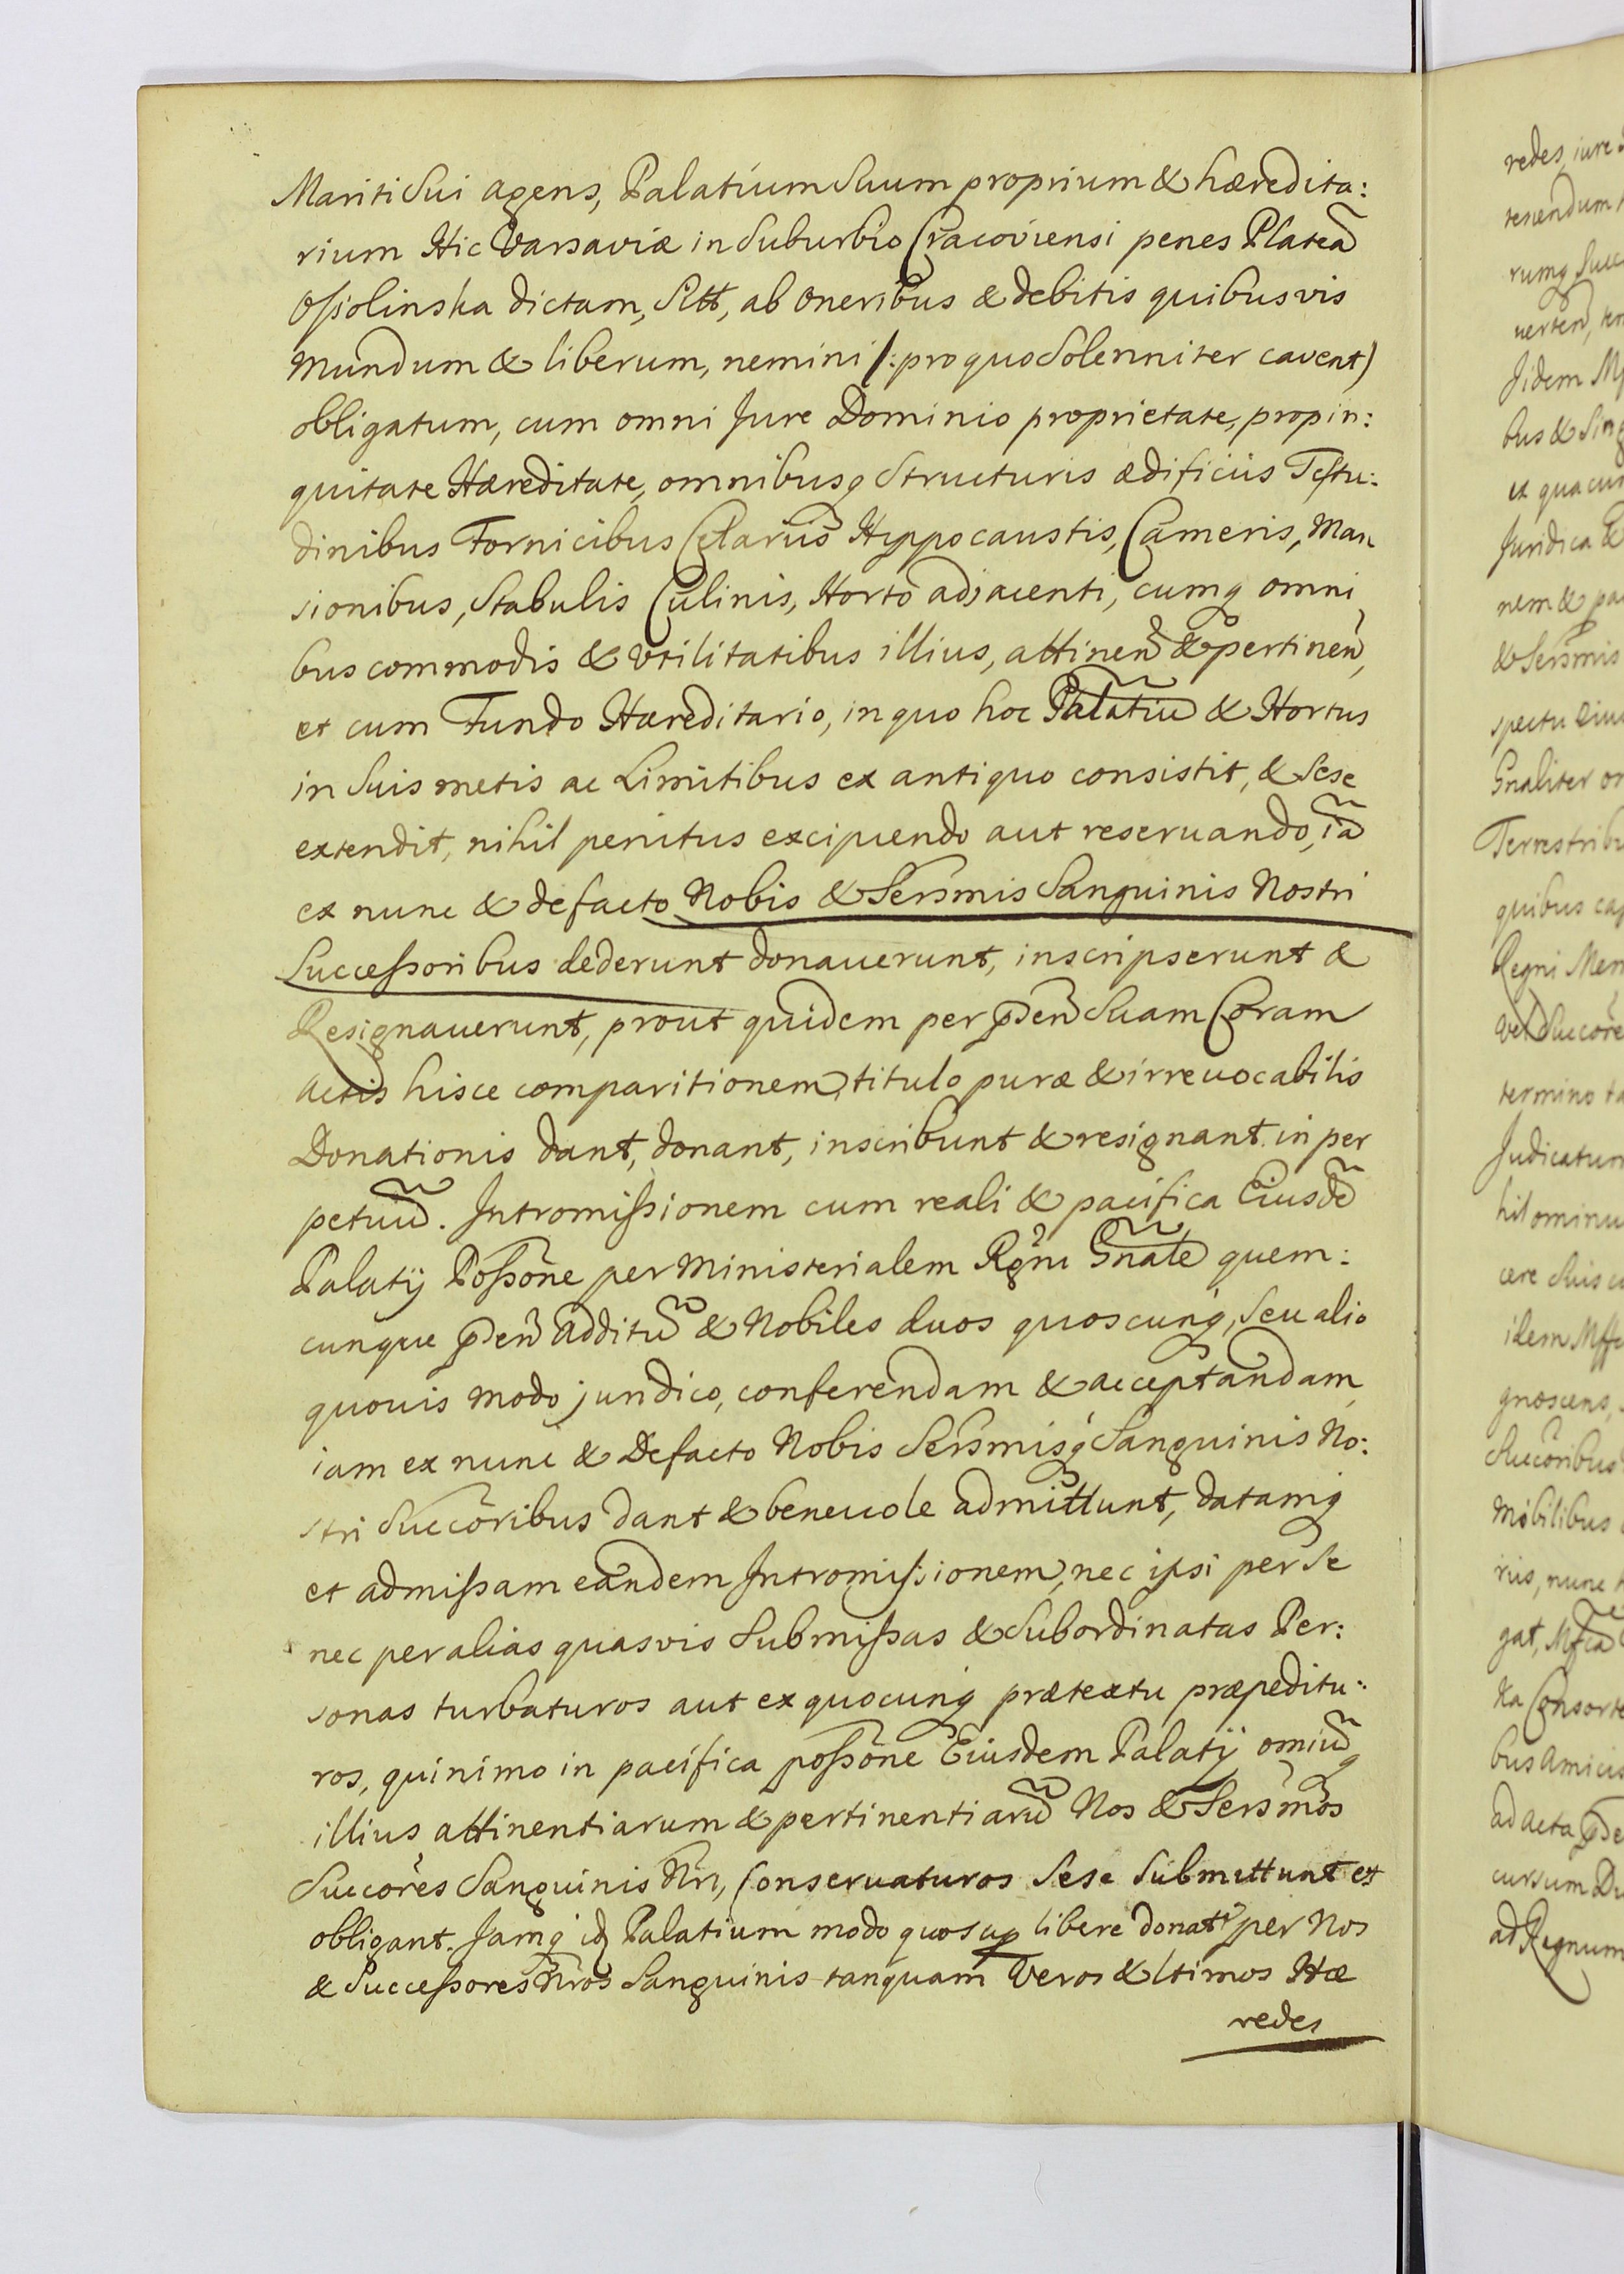 Mariti Sui agens, Palatium Suum proprium & hæredita:
rium Hic Varsaviæ in Suburbio Cracoviensi penes Plateã
Ossolinska dictam, Sitt, ab Oneribus & debitis quibusvis
Mundum & liberum, nemini /: pro quo Solenniter cavent)
obligatum, cum omni Jure Dominio proprietate, propin:
quitate Hæreditate, omnibusq Structuris ædificiis Testu:
dinibus Fornicibus Cellariis Hyppocaustis, Cameris, Man
sionibus, Stabulis Culinis, Horto adjacenti, cumq omni
bus commodis & Utilitatibus illius, attineñ & pertineñ,
et cum Fundo Hæreditario, in quo hoc Palatiũ & Hortus
in Suis metis ac Limitibus ex antiquo consistit, & Sese
extendit, nihil penitus excipiendo aut reseruando, iã
ex nunc & defacto Nobis & Sersmis Sanguinis Nostri
Successoribus dederunt donauerunt, inscripserunt &
Resignauerunt, prout quidem per pñdeñ Suam Coram
Actis hisce comparitionem, titulo puræ & irreuocabilis
Donationis dant, donant, inscribunt & resignant in per
petuũ. Intromissionem cum reali & pacifica Eiusdẽ
Palatÿ Possõne per Ministerialem Rgni Gnalẽ quem:
cunque pñdeñ additũ & Nobiles duos quoscunq, Seu alio
quouis modo juridico, conferendam & acceptandam,
iam ex nunc & Defacto Nobis Sersmisq Sanguinis No:
stri Succõribus dant & beneuole admittunt, datamq
et admissam eandem Intromissionem, nec ipsi per Se
nec per alias quasvis Submissas & Subordinatas Per:
sonas turbaturos aut ex quocunq prætextu præpeditu:
ros, quinimo in pacifica possõne Eiusdem Palatÿ omiũq
illius attinentiarum & pertinentiarũ Nos & Sersmos
Succõres Sanguinis Nri, Conseruaturos Sese Submittunt et
obligant. Jamq id Palatium modo quo sup libere donatũ per Nos
& Successores Nros Sanguinis tanquam Veros & ltimos Hæ
redes